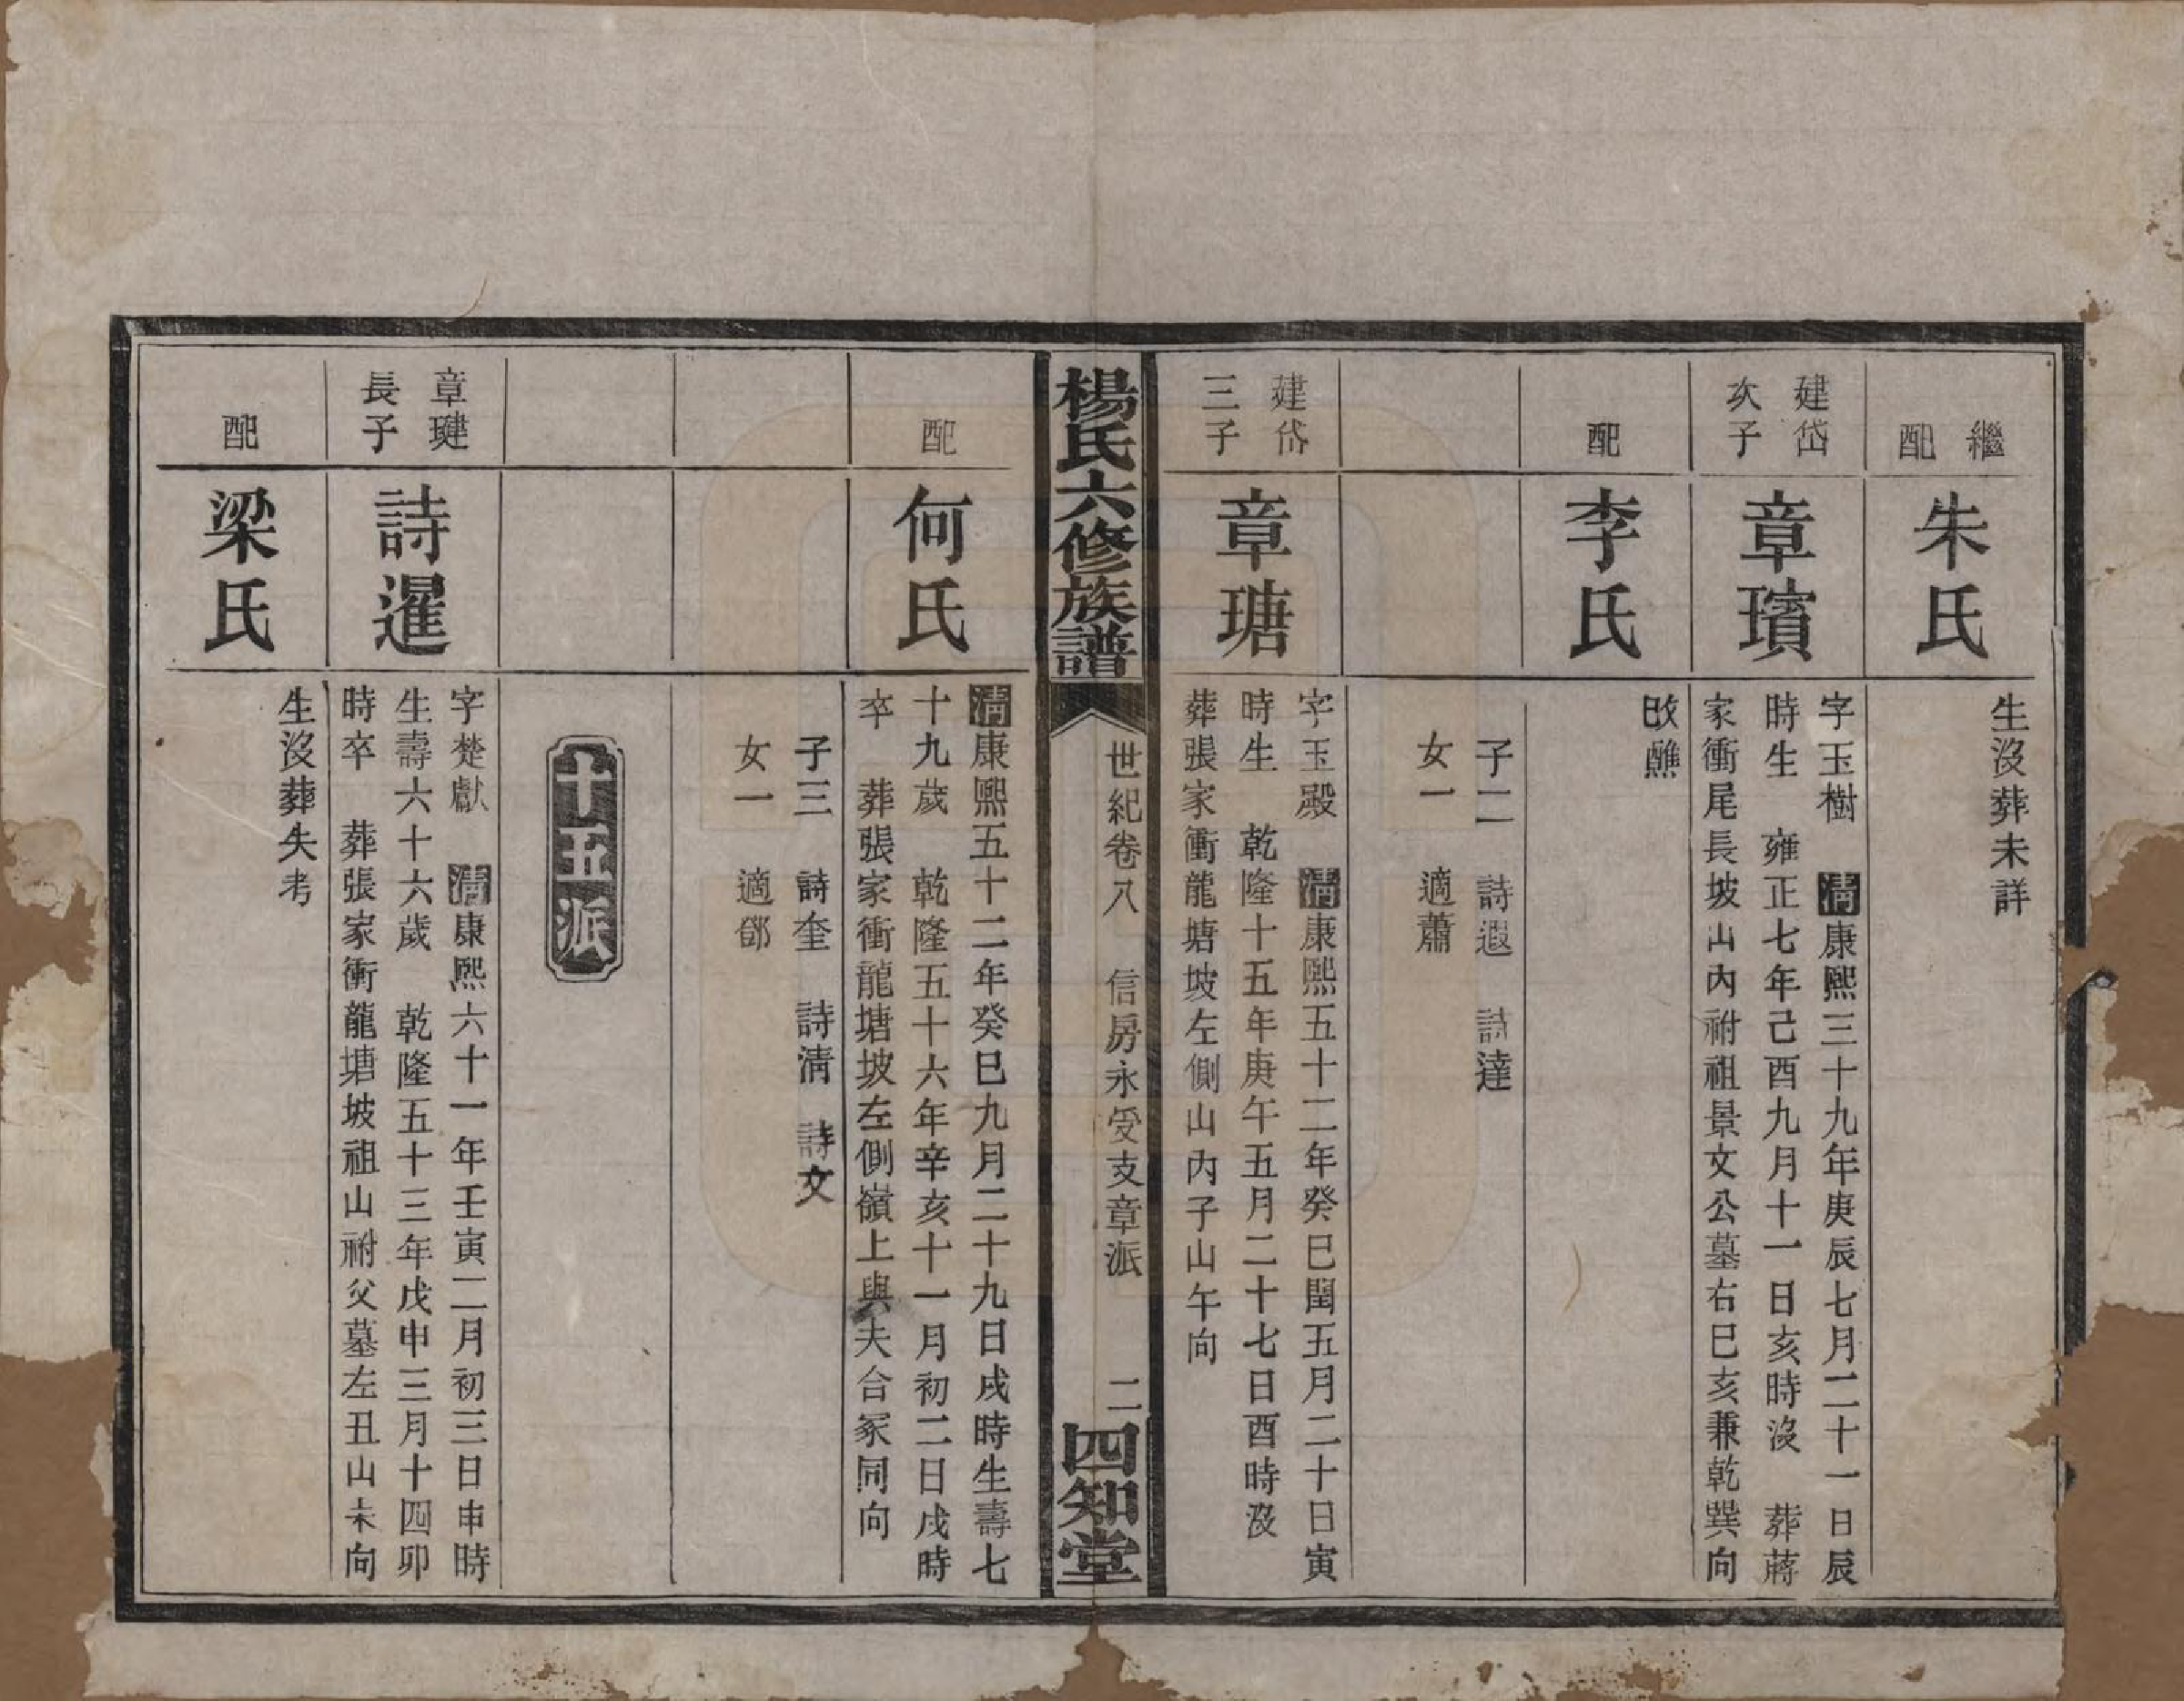 繼
配
朱氏
生沒葬未詳
建岱
次子
章璸
字玉樹　清康熙三十九年庚辰七月二十一日辰
時生　雍正七年己酉九月十一日亥時沒　葬蔣
家衝尾長坡山內祔祖景文公墓右巳亥兼乾巽向
配
李氏
改醮
子二　詩遐　詩達
女一　適蕭
建岱
三子
章瑭
字玉殿　清康熙五十二年癸巳閏五月二十日寅
時生　乾隆十五年庚午五月二十七日酉時沒
葬張家衝龍塘坡左側山內子山午向
楊氏六修族譜
世紀卷八　信房永受支章派　二
四知堂
配
何氏
清康熙五十二年癸巳九月二十九日戌時生壽七
十九歲　乾隆五十六年辛亥十一月初二日戌時
卒　葬張家衝龍塘坡左側嶺上與夫合冢同向
子三　詩奎　詩清　詩文
女一　適鄧
十五派
章琎
長子
詩暹
字楚獻　清康熙六十一年壬寅二月初三日申時
生壽六十六歲　乾隆五十三年戊申三月十四卯
時卒　葬張家衝龍塘坡祖山祔父墓左丑山未向
配
梁氏
生沒葬失考